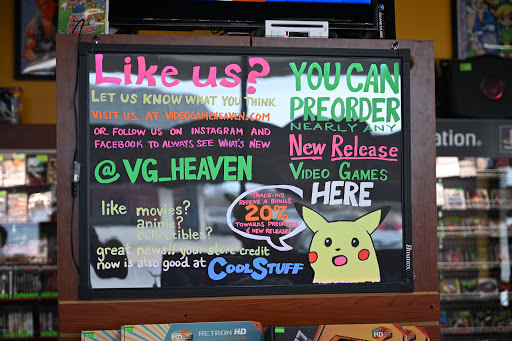 Like us?
LET US KNOW WHAT YOU THINK
VISIT US AT VIDEOGAMEHEAVEN.COM
OR FOLLOW US ON INSTAGRAM AND
FACEBOOK TO ALWAYS SEE WHAT'S NEW
@VG_HEAVEN
like movies?
anime?
collectibles?
great news!! your store credit
now is also good at COOLSTUFF
YOU CAN
PREORDER
NEARLY ANY
NEW RELEASE
VIDEO GAMES
HERE
TRADE-INS
RECEIVE A BONUS
20%
TOWARDS PREORDERS
& NEW RELEASES
RETRON HD
HD